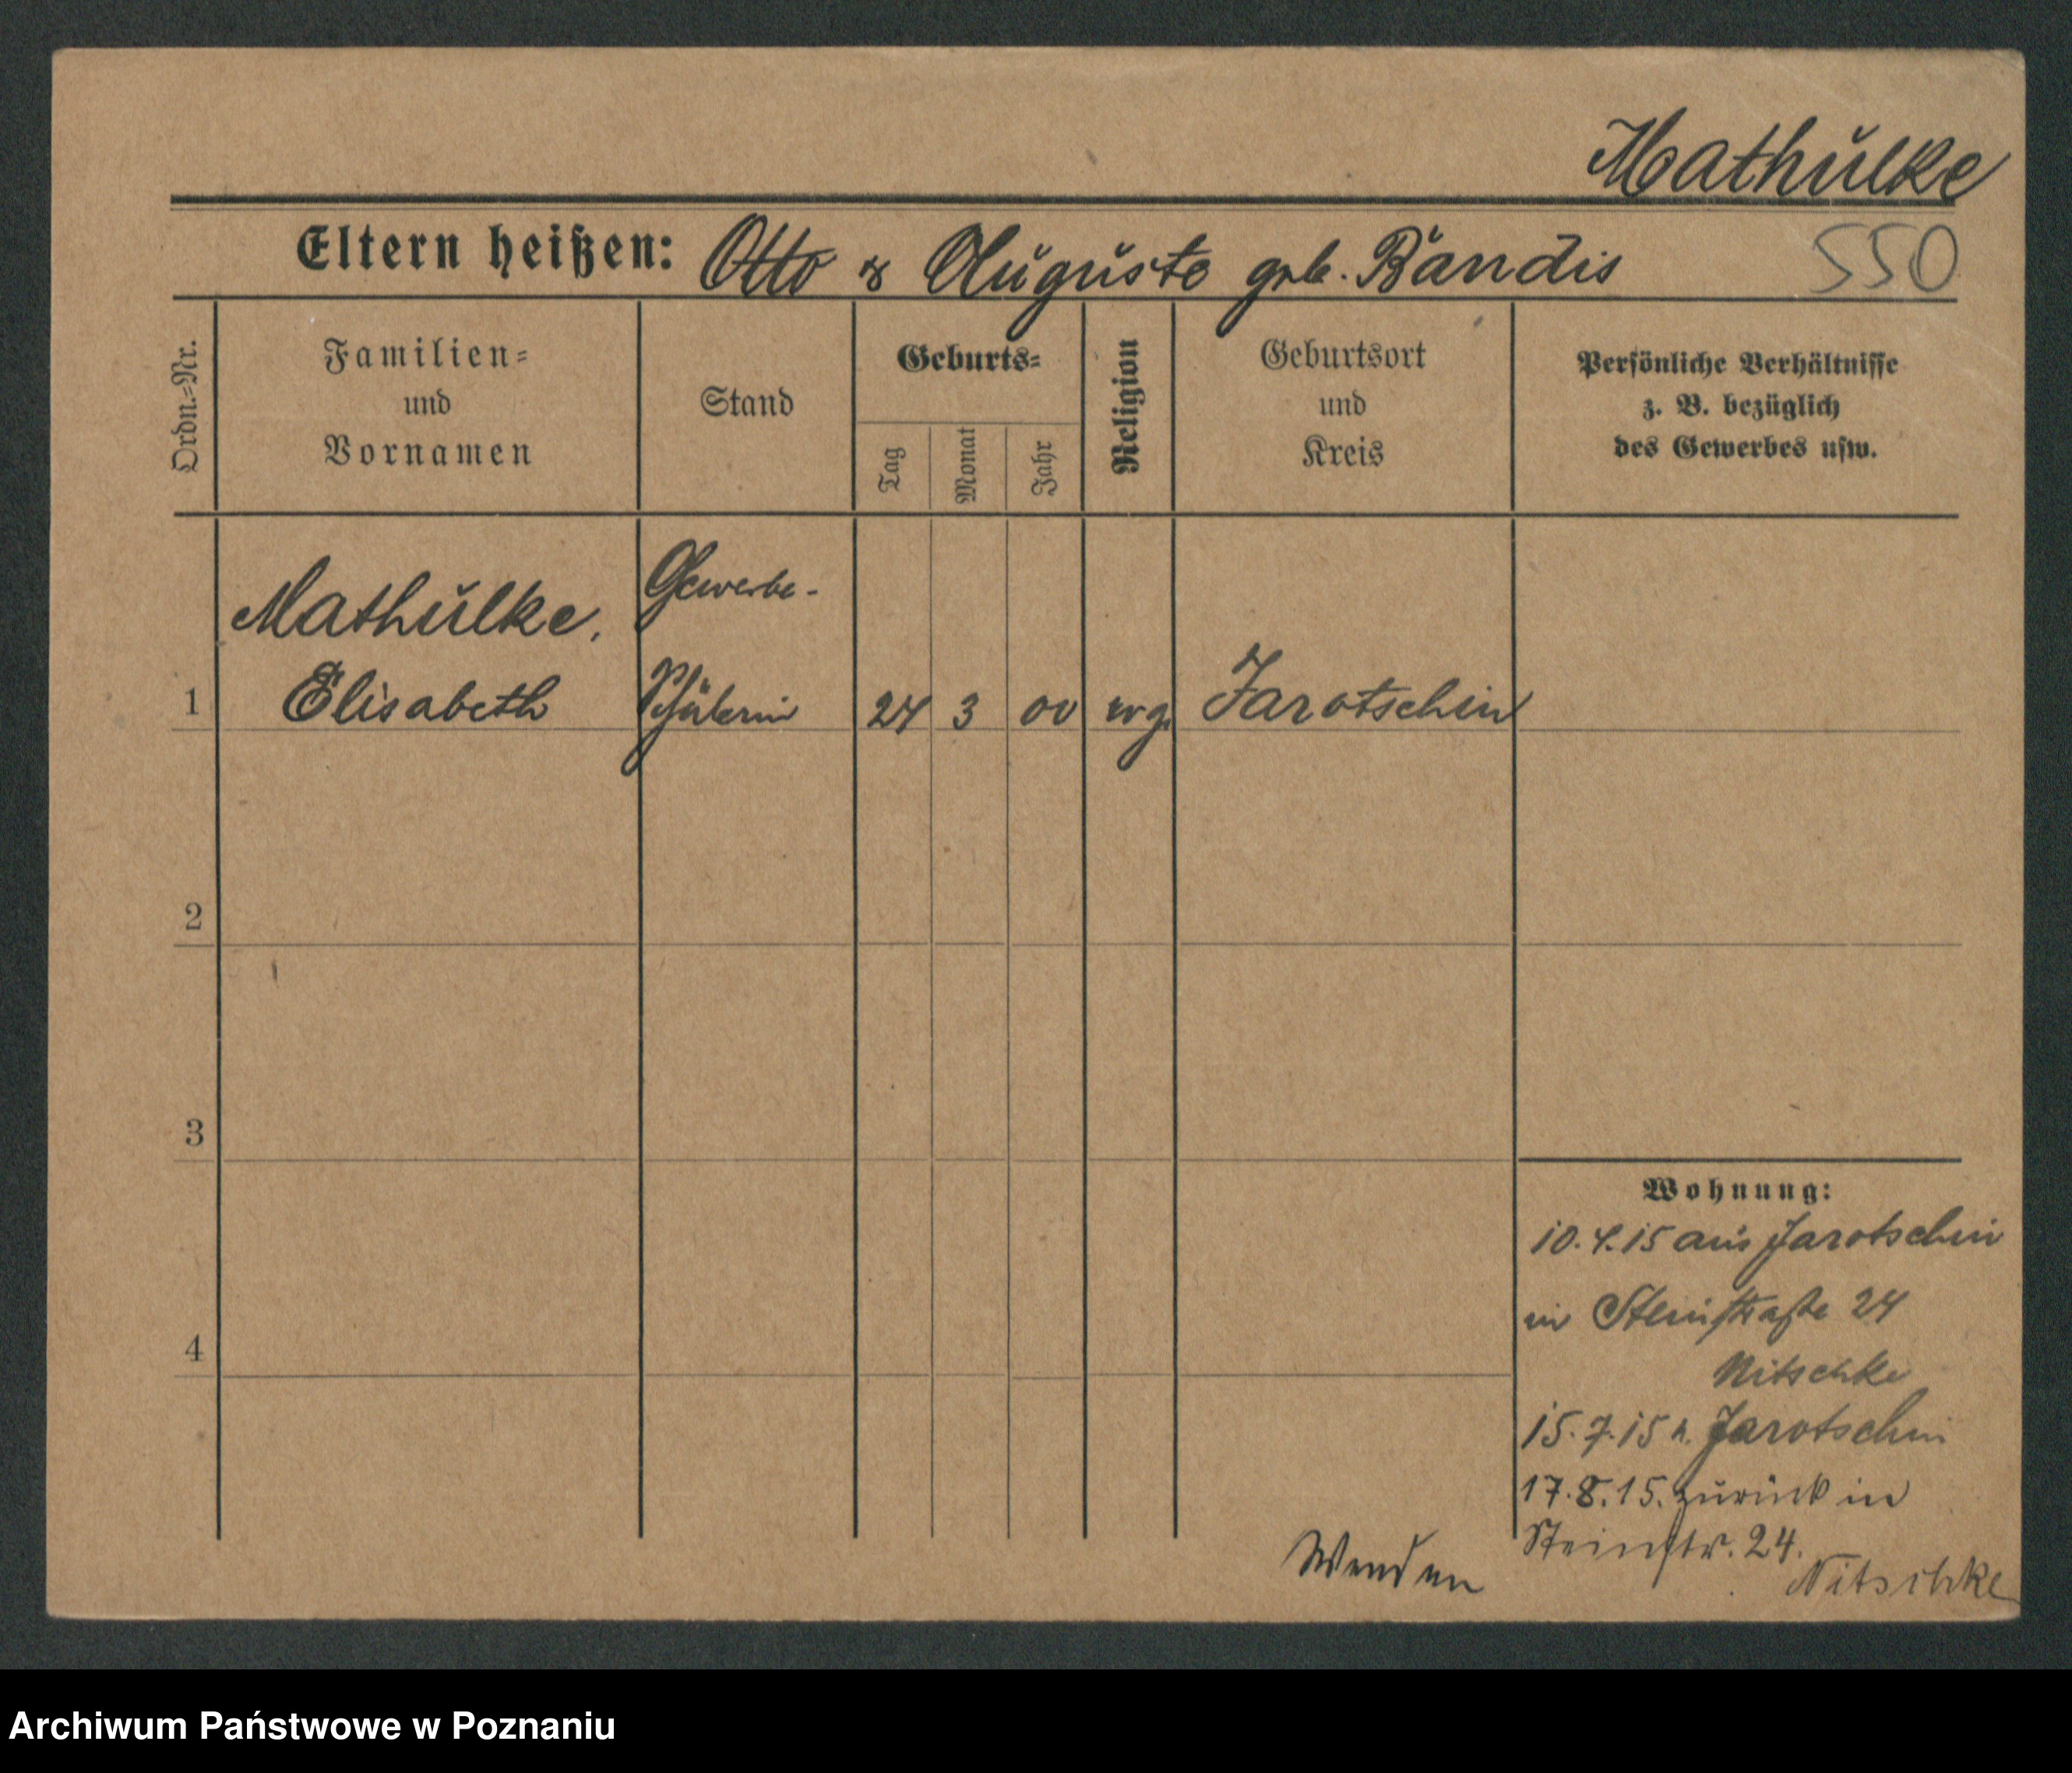 Mathulke
Eltern heißen: Otto & Auguste geb. Bandis
550
Ordn.=Nr.
Familien=
und
Vornamen
Stand
Geburts=
Tag
Monat
Jahr
Religion
Geburtsort
und
Kreis
Persönliche Verhältnisse
z. B. bezüglich
des Gewerbes usw.
Mathulke,
Gewerbe-
1 Elisabeth Schülerin 24 3 00 evg. Jarotschin
2
3
4
Wohnung:
10.4.15 aus Jarotschin
in Steinstraße 24
Nitschke
15.7.15 n. Jarotschin
17.8.15. zurück in
Steinstr. 24.
Nitschke
Wenden
Archiwum Państwowe w Poznaniu